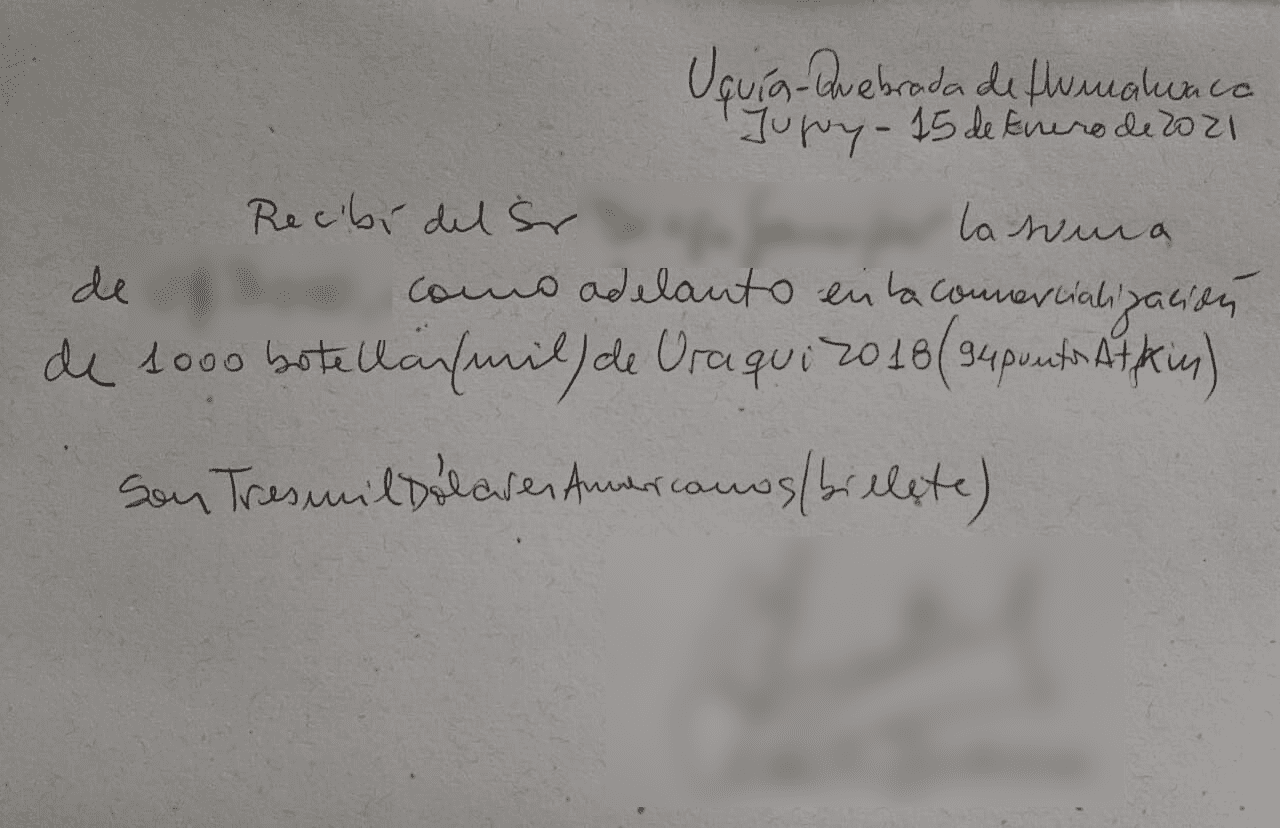 Uquía - Quebrada de Humahuaca
Jujuy - 15 de Enero de 2021
Recibí del Sr la suma
de como adelanto en la comercialización
de 1000 botellas (mil) de Uraqui 2018 (94 puntos Atkin)
Son Tres mil Dólares Americanos (billete)